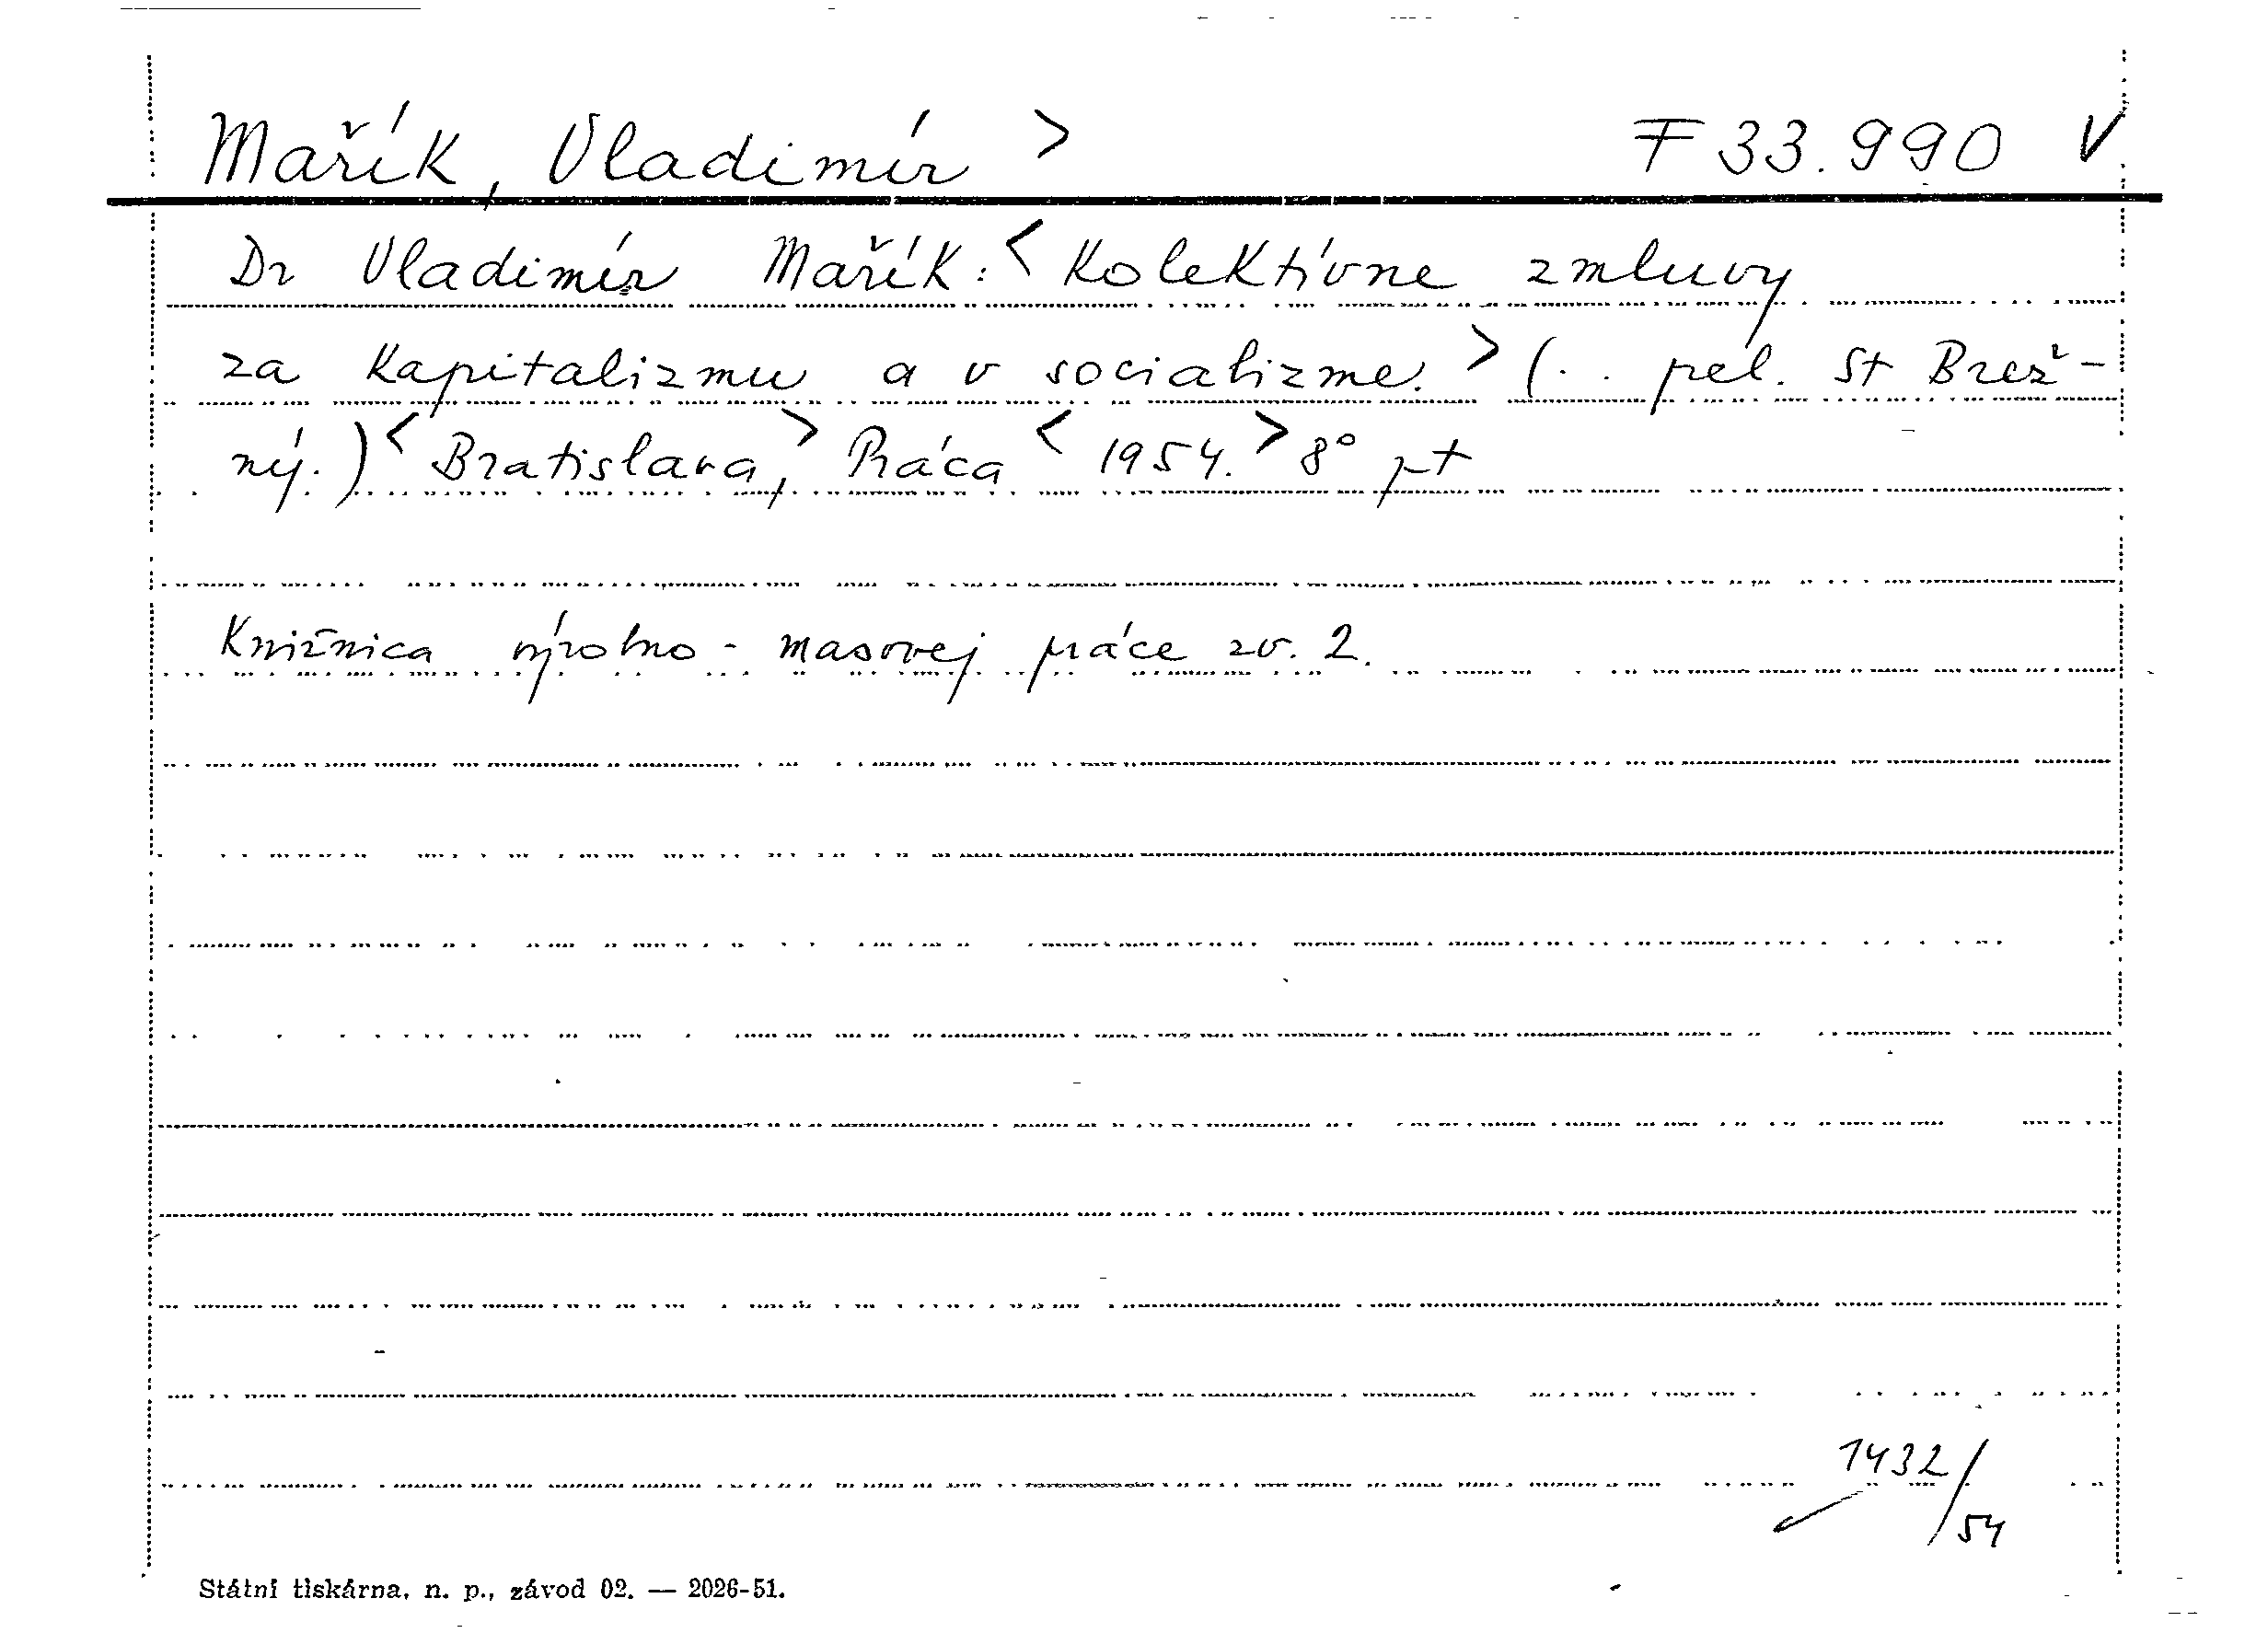 Mařík, Vladimír > F 33.990 V
Dr Vladimír Mařík: < Kolektívne zmluvy
za kapitalizmu a v socializme. > (. . pel. St Brež-
ný.) < Bratislava, > Práca < 1954. > 8° pt
Knižnica výrobno - masovej práce zv. 2.
1432/54
Státní tiskárna, n. p., závod 02. — 2026-51.